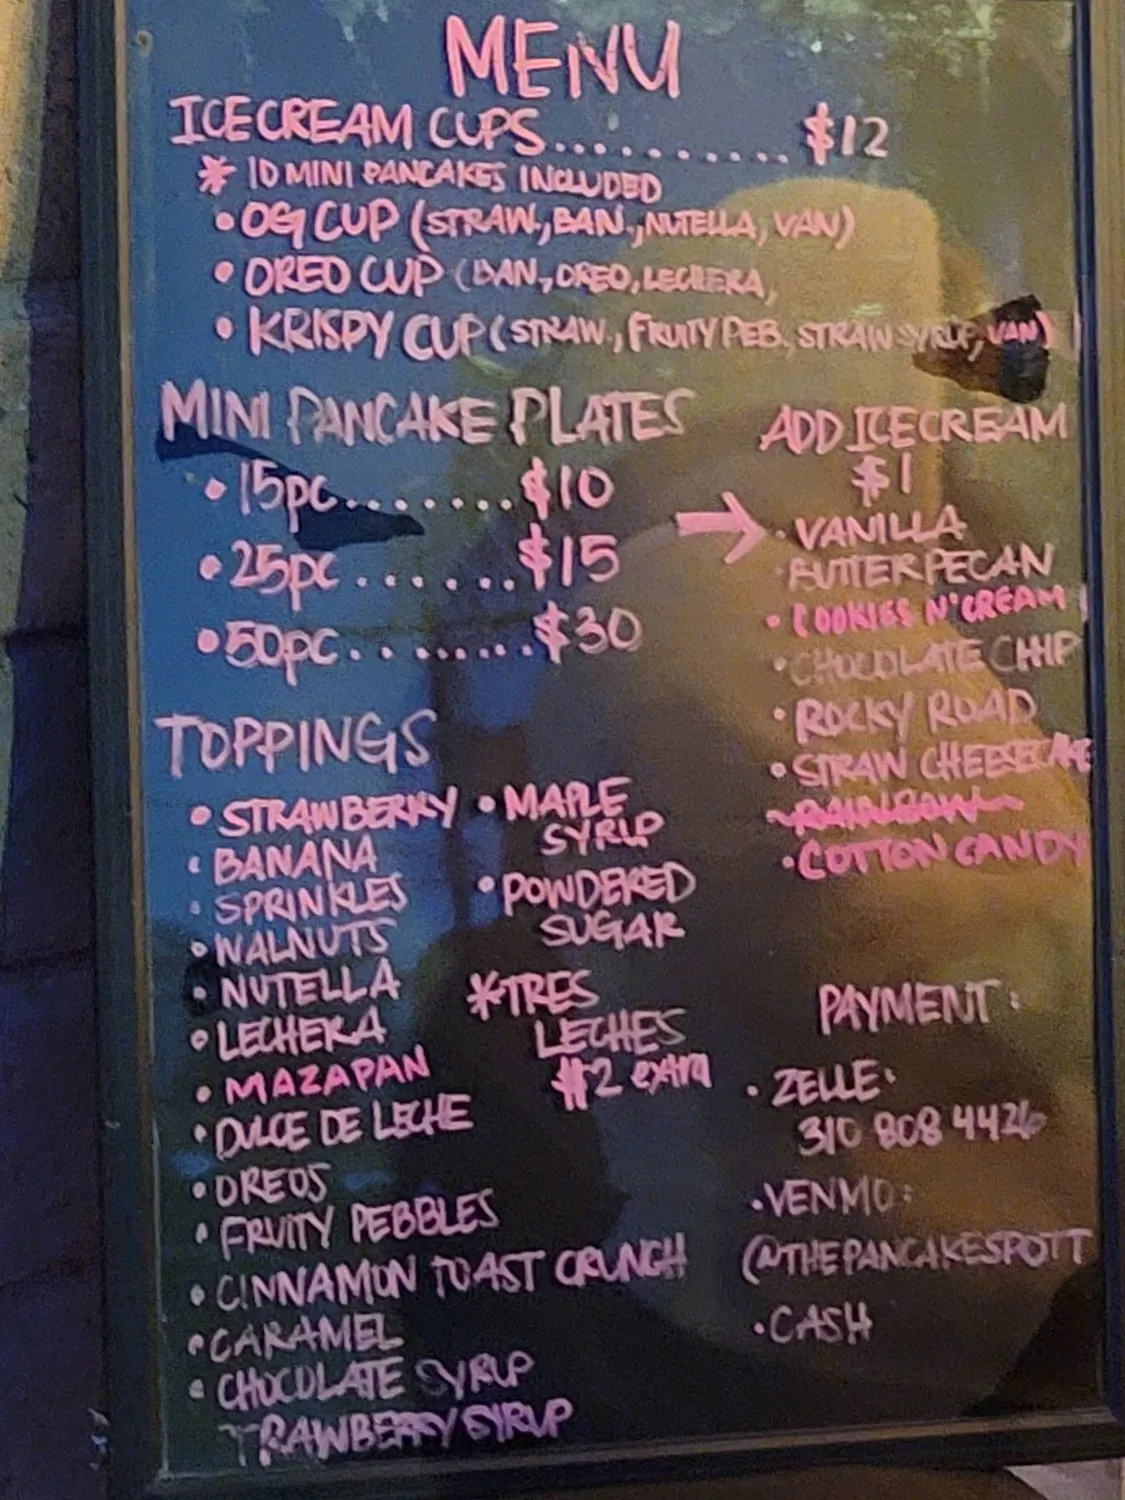 MENU
ICE CREAM CUPS.......... $12
* 10 MINI PANCAKES INCLUDED
• OG CUP (STRAW., BAN., NUTELLA, VAN)
• OREO CUP (BAN., OREO, LECHERA,
• KRISPY CUP (STRAW., FRUITY PEB. STRAW SYRUP, VAN)
MINI PANCAKE PLATES
• 15pc.......$10
• 25pc......$15
• 50pc........$30
ADD ICE CREAM
$1
→ • VANILLA
• BUTTER PECAN
• COOKIES N' CREAM
• CHOCOLATE CHIP
• ROCKY ROAD
• STRAW CHEESECAKE
RAINBOW
• COTTON CANDY
TOPPINGS
• STRAWBERRY
• BANANA
• SPRINKLES
• WALNUTS
• NUTELLA
• LECHERA
• MAZAPAN
• DULCE DE LECHE
• OREOS
• FRUITY PEBBLES
• CINNAMON TOAST CRUNCH
• CARAMEL
• CHOCOLATE SYRUP
TRAWBERRY SYRUP
• MAPLE
SYRUP
• POWDERED
SUGAR
*TRES
LECHES
$2 extra
PAYMENT:
• ZELLE:
310 808 4426
• VENMO:
@THEPANCAKESPOTT
• CASH